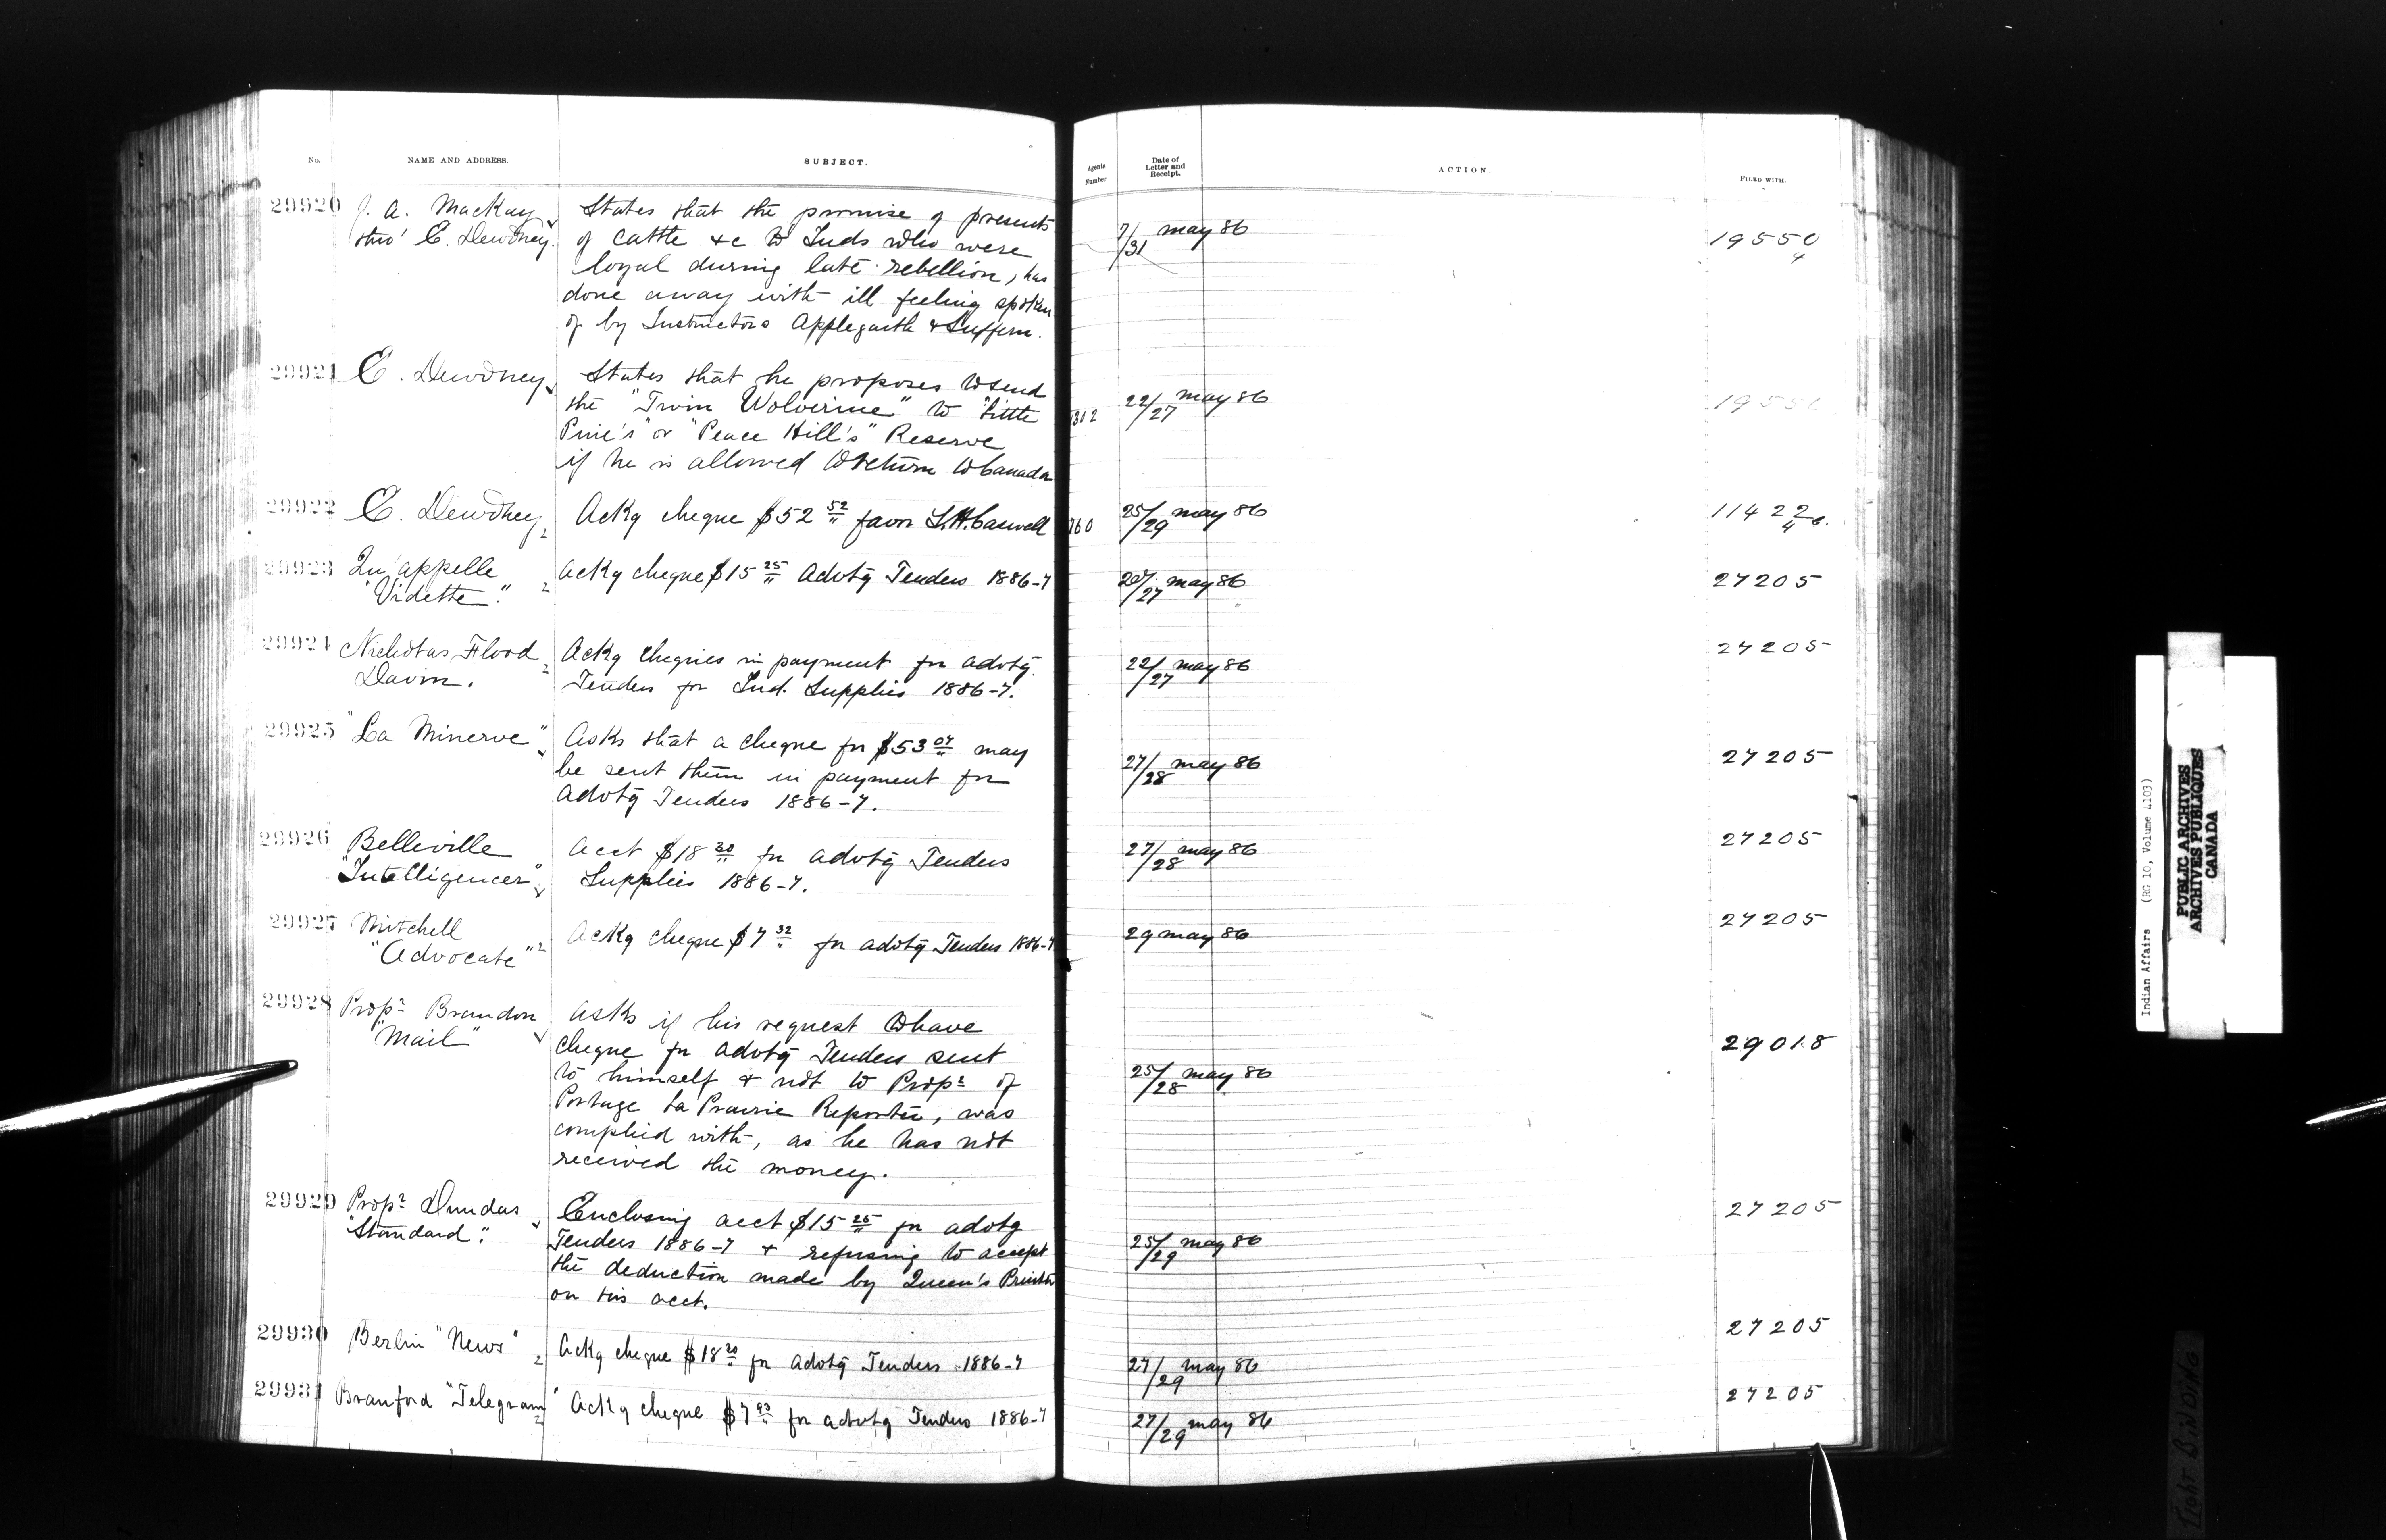 No. NAME AND ADDRESS. SUBJECT. Agents Number Date of Letter and Receipt. ACTION. FILED WITH.
29920 J. A. MacKay
thro' E. Dewdney.
States that the promise of presents
of cattle &c to Inds who were
loyal during late rebellion, has
done away with ill feeling spoken
of by Instructors Applegarth & Suffern.
7/31 May 86
19550/4
29921 E. Dewdney
States that he proposes to send
the "Twin Wolverine" to "Little
Pine's" or "Peace Hill's" Reserve
if he is allowed to return to Canada
1312
22/27 May 86
29922 E. Dewdney
Ackg cheque $52 52/" favor L.H. Caswell
760
25/29 May 86
11422/4
29923 Qu'appelle
"Vidette."
Ackg cheque $15 25/" Advtg Tenders 1886-7
27 May 86
27205
29924 Nicholas Flood
Davin.
Ackg cheques in payment for advtg
Tenders for Ind. Supplies 1886-7.
22/27 May 86
27205
29925 "La Minerve"
Asks that a cheque for $53 07/" may
be sent them in payment for
Advtg Tenders 1886-7.
27/28 May 86
27205
29926 Belleville
"Intelligencer"
Acct $18 30/" for advtg Tenders
Supplies 1886-7.
27/28 May 86
27205
29927 Mitchell
"Advocate"
Ackg cheque $7 32/" for advtg Tenders 1886-7
29 May 86
27205
29928 Propr Brandon
"Mail"
Asks if his request to have
cheque for advtg Tenders sent
to himself & not to Propr of
Portage La Prairie Reporter, was
complied with, as he has not
received the money.
25/28 May 86
29018
29929 Propr Dundas
"Standard".
Enclosing acct $15 25/" for advtg
Tenders 1886-7 & refusing to accept
the deduction made by Queen's Printer
on his acct.
25/29 May 86
27205
29930 Berlin "News"
Ackg cheque $18 30/" for advtg Tenders 1886-7
27/29 May 86
27205
29931 Branford "Telegram"
Ackg cheque $7 93/" for advtg Tenders 1886-7
27/29 May 86
27205
Indian Affairs (RG 10, Volume 4103)
PUBLIC ARCHIVES
ARCHIVES PUBLIQUES
CANADA
TIGHT BINDING